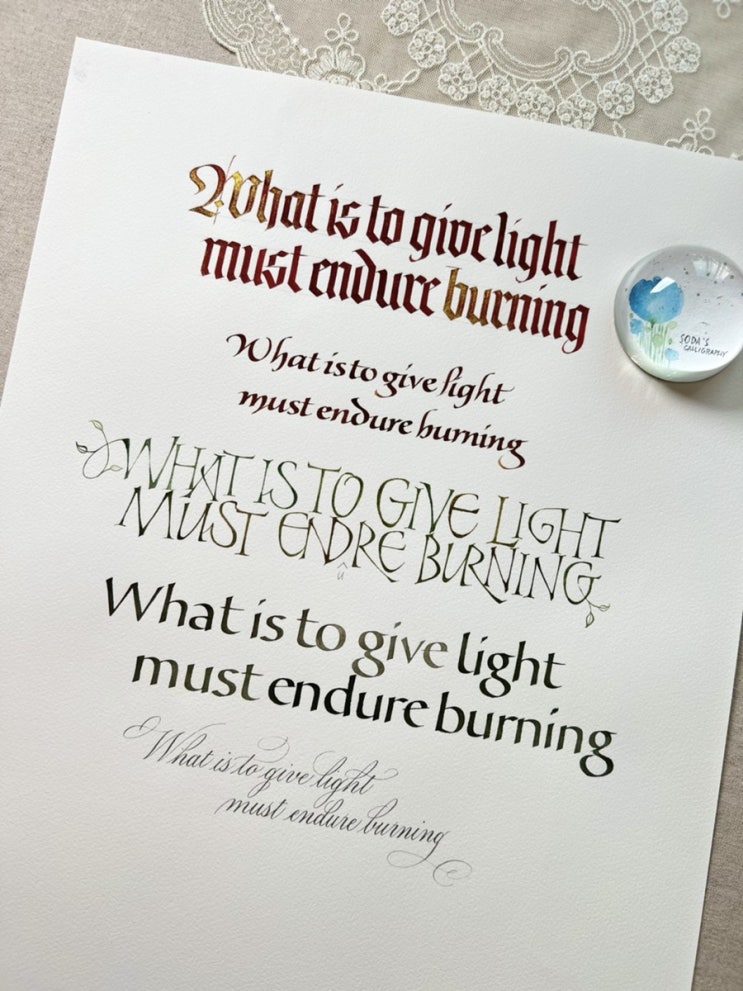 What is to give light
must endure burning
What is to give light
must endure burning
WHAT IS TO GIVE LIGHT
MUST ENDRE BURNING
û
What is to give light
must endure burning
What is to give light
must endure burning
SODA'S
CALLIGRAPHY